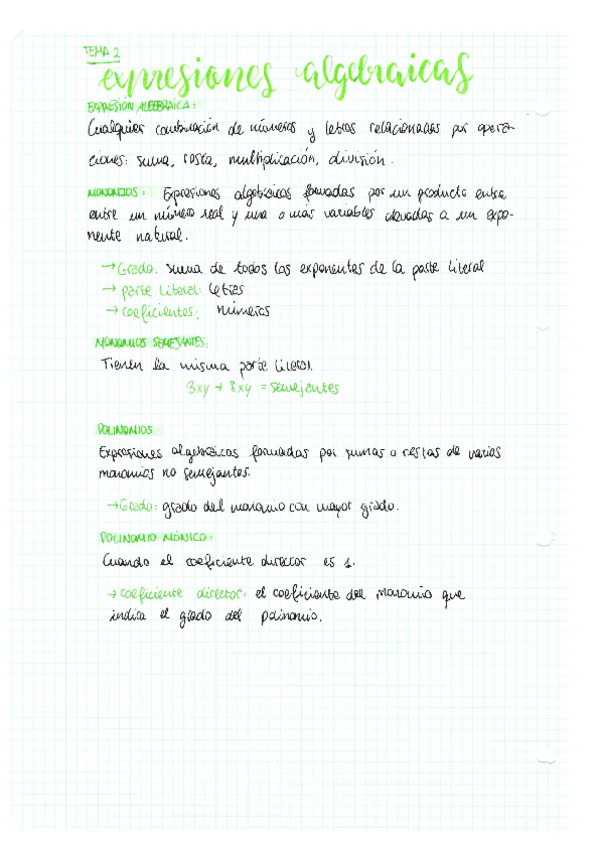 TEMA 2.
expresiones algebraicas
EXPRESIÓN ALGEBRAICA:
Cualquier combinación de números y letras relacionadas por opera-
ciones: suma, resta, multiplicación, división.
MONOMIOS: Expresiones algebraicas formadas por un producto entre
entre un número real y una o más variables elevadas a un expo-
nente natural.
→ Grado: suma de todos los exponentes de la parte literal
→ parte literal: letras
→ coeficientes: números
MONOMIOS SEMEJANTES:
Tienen la misma parte literal.
3xy + 8xy = semejantes
POLINOMIOS
Expresiones algebraicas formadas por sumas o restas de varios
monomios no semejantes.
→ Grado: grado del monomio con mayor grado.
POLINOMIO MÓNICO:
Cuando el coeficiente director es 1.
→ coeficiente director: el coeficiente del monomio que
indica el grado del polinomio.